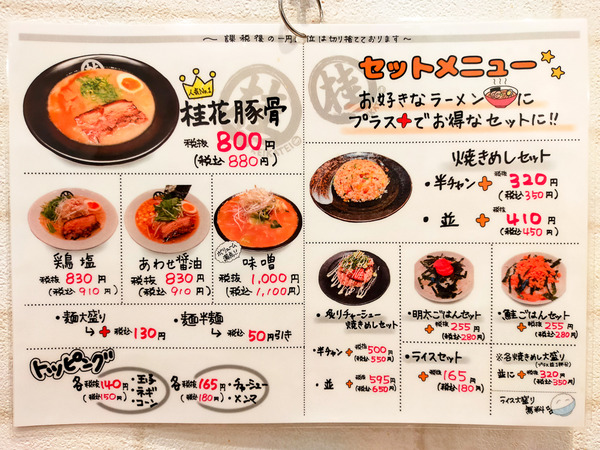 ～ 課税後の一円単位は切り捨てております ～
人気No.1
桂花豚骨
税抜 800円
(税込 880円)
鶏塩
税抜 830円
(税込 910円)
あわせ醤油
税抜 830円
(税込 910円)
味噌
税抜 1,000円
(税込 1,100円)
・麺大盛り
↳ + 130円
・麺半麺
↳ 50円引き
トッピング
各税抜140円
(税込150円)
・玉子
・ネギ
・コーン
各税抜165円
(税込180円)
・チャーシュー
・メンマ
桂
セットメニュー
お好きなラーメンに
プラス+でお得なセットに!!
焼きめしセット
・半チャン + 税抜 320円
(税込 350円)
・並 + 税抜 410円
(税込 450円)
・炙りチャーシュー
焼きめしセット
・半チャン + 税抜 500円
(税込 550円)
・並 + 税抜 595円
(税込 650円)
・明太ごはんセット
+ 税抜 255円
(税込 280円)
・鮭ごはんセット
+ 税抜 255円
(税込 280円)
・ライスセット
+ 税抜 165円
(税込 180円)
※各焼きめし大盛り
並に + 税抜 320円
(税込 350円)
ライス大盛り
無料